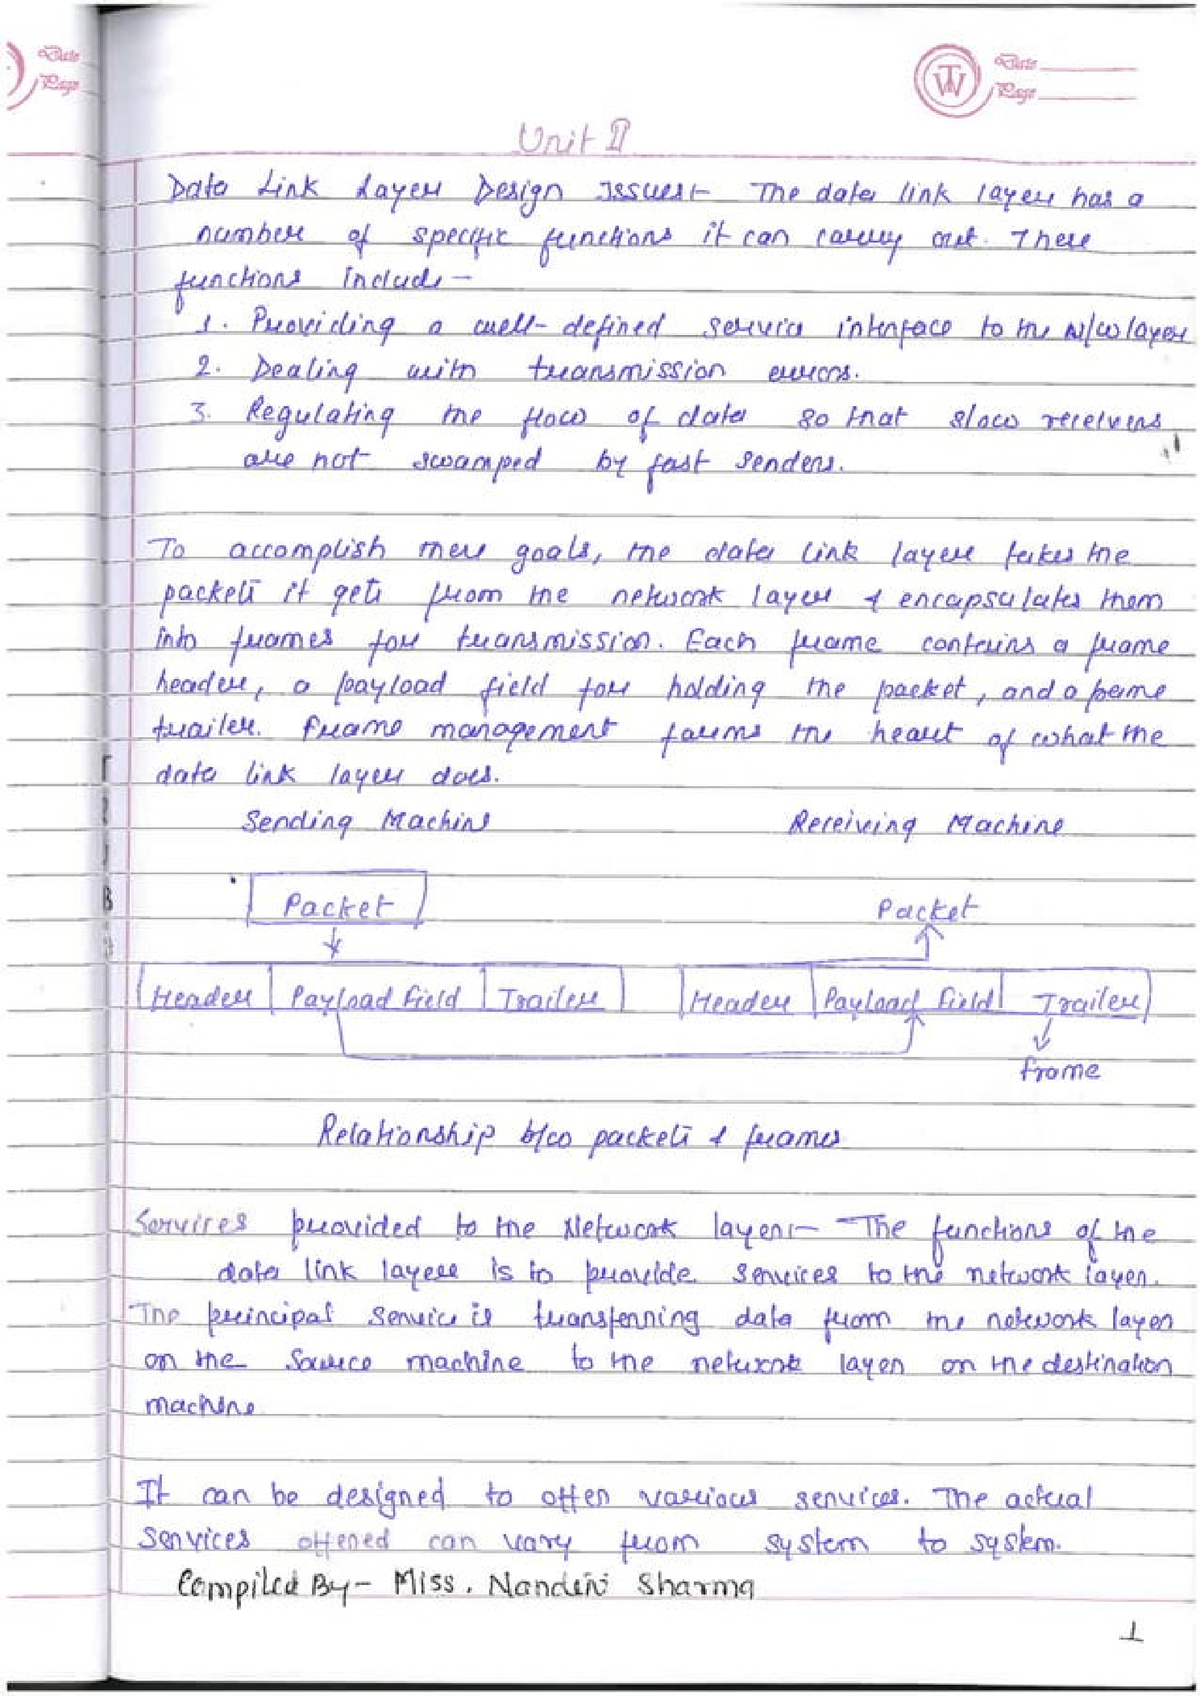 Date
Page
TW
Date
Page
Unit II
Data Link Layer Design Issues:- The data link layer has a
number of specific functions it can carry out. These
functions include -
1. Providing a well-defined service interface to the N/w layer
2. Dealing with transmission errors.
3. Regulating the flow of data so that slow receivers
are not swamped by fast senders.
To accomplish these goals, the data link layer takes the
packets it gets from the network layer & encapsulates them
into frames for transmission. Each frame contains a frame
header, a payload field for holding the packet, and a frame
trailer. Frame management forms the heart of what the
data link layer does.
Sending Machine Receiving Machine
Packet Packet
Header Payload field Trailer Header Payload field Trailer
frame
Relationship b/w packets & frames
Services provided to the Network layer:- The functions of the
data link layer is to provide services to the network layer.
The principal service is transferring data from the network layer
on the source machine to the network layer on the destination
machine
It can be designed to offer various services. The actual
services offered can vary from system to system.
Compiled By- Miss. Nandini Sharma
1